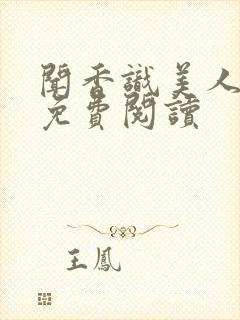 聞香識美人
免費閱讀
王鳳